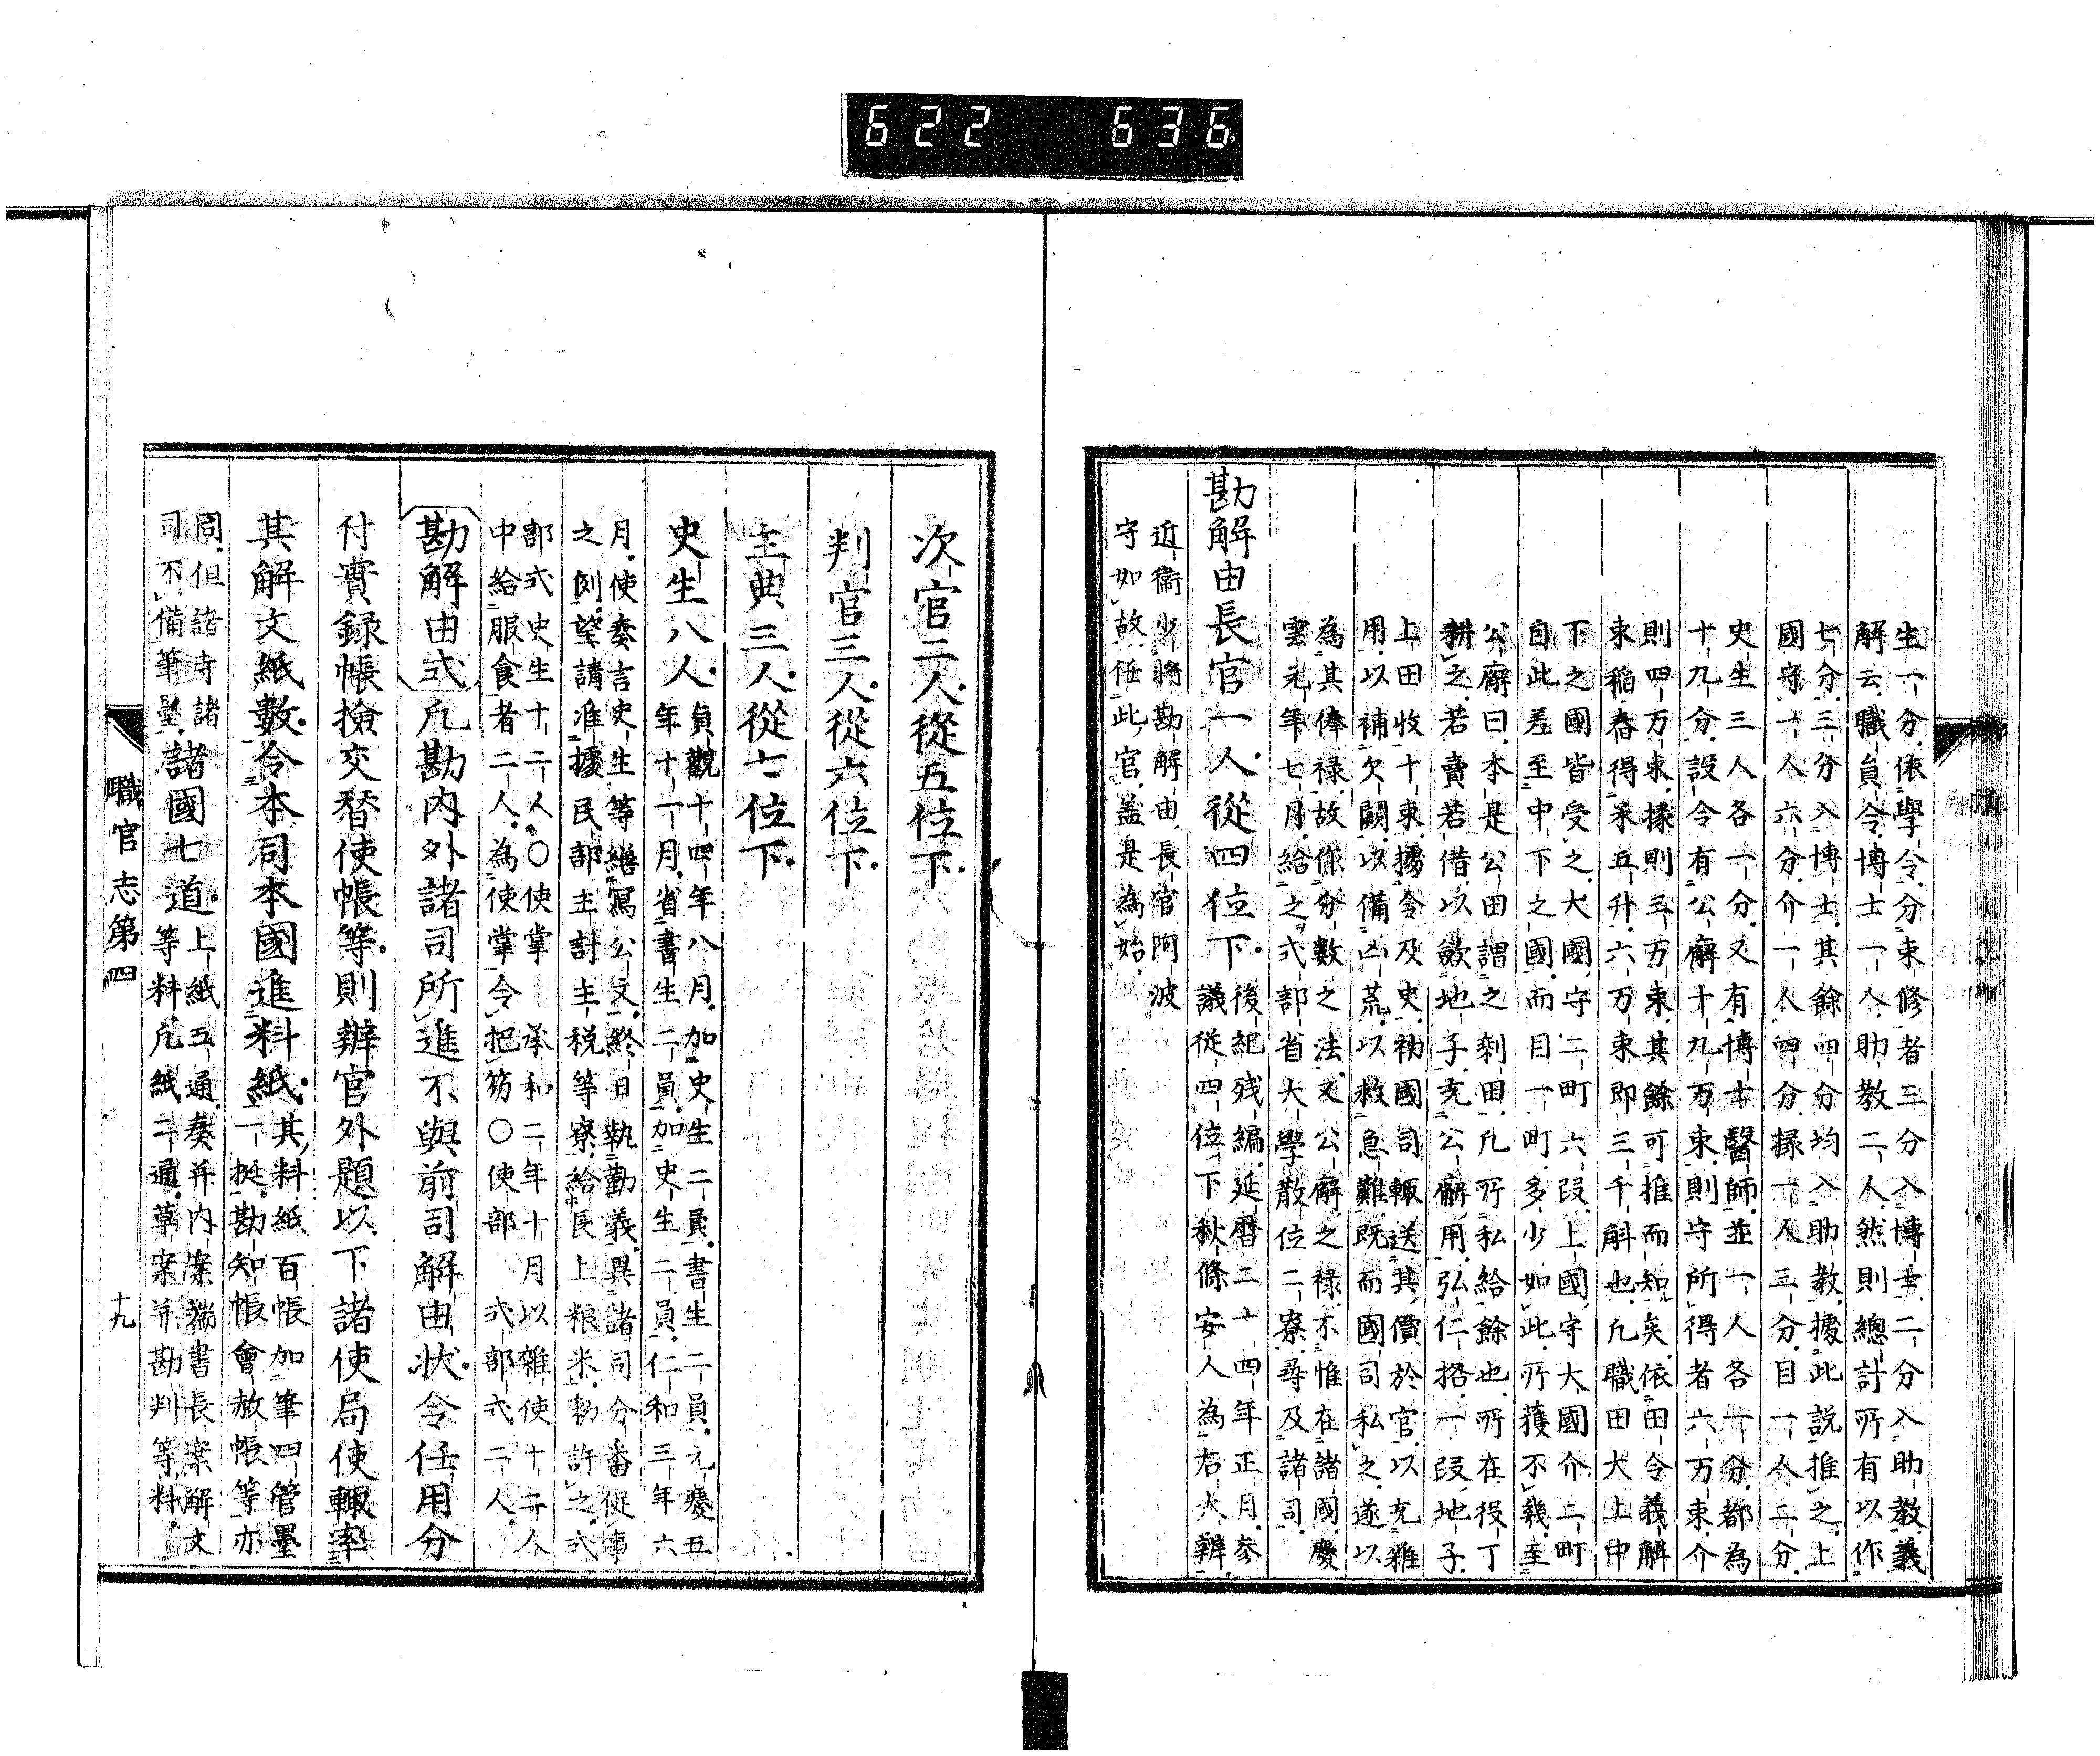 622 636
生一分依學令分束修者三分入博士二分入助教義
解云職員令博士一人助教二人然則總計所有以作
七分三分入博士其餘四分均入助教據此說推之上
國守一人六分介一人四分掾一人三分目一人二分
史生三人各一分又有博士醫師並一人各一分都為
十九分設令有公廨十九万束則守所得者六万束介
則四万束掾則三万束其餘可推而知矣依田令義解
束稲舂得米五升六万束即三千斛也凡職田大上中
下之國皆受之大國守二町六段上國守大國介二町
自此差至中下之國而目一町多少如此所獲不幾至
公廨田本是公田謂之剩田凡所私給餘也所在役丁
耕之若賣若借以歛地子充公廨用弘仁格一段地子
上田收十束據令及史初國司輙送其價於官以充雜
用以補欠闕以備凶荒以救急難既而國司私之遂以
為其俸禄故作分數之法又公廨之禄不惟在諸國慶
雲元年七月給之式部省大學散位二寮尋及諸司
勘解由長官一人從四位下後紀残編延暦二十四年正月參
議從四位下秋條安人為右大辨
近衞少將勘解由長官阿波
守如故任此官盖是為始
次官二人從五位下
判官三人從六位下
主典三人從七位下
史生八人貞觀十四年八月加史生二員書生二員元慶五
年十一月省書生二員加史生二員仁和三年六
月使奏言史生等繕寫公文終日執勤義異諸司分番從事
之例望請准據民部主計主税等寮給中長上粮米勅許之式
部式史生十二人〇使掌 承和二年十月以雜使十二人
中給服食者二人為使掌令把笏〇使部 式部式二人
勘解由式凡勘內外諸司所進不與前司解由状令任用分
付實録帳撿交替使帳等則辨官外題以下諸使局使輙率
其解文紙數令本司本國進料紙其料紙百帳加筆四管墨
一挺勘知帳會赦帳等亦
同但諸寺諸
司不備筆墨諸國七道上紙五通奏并内案端書長案解文
等料凡紙二通草案并勘判等料
職官志第四
十九